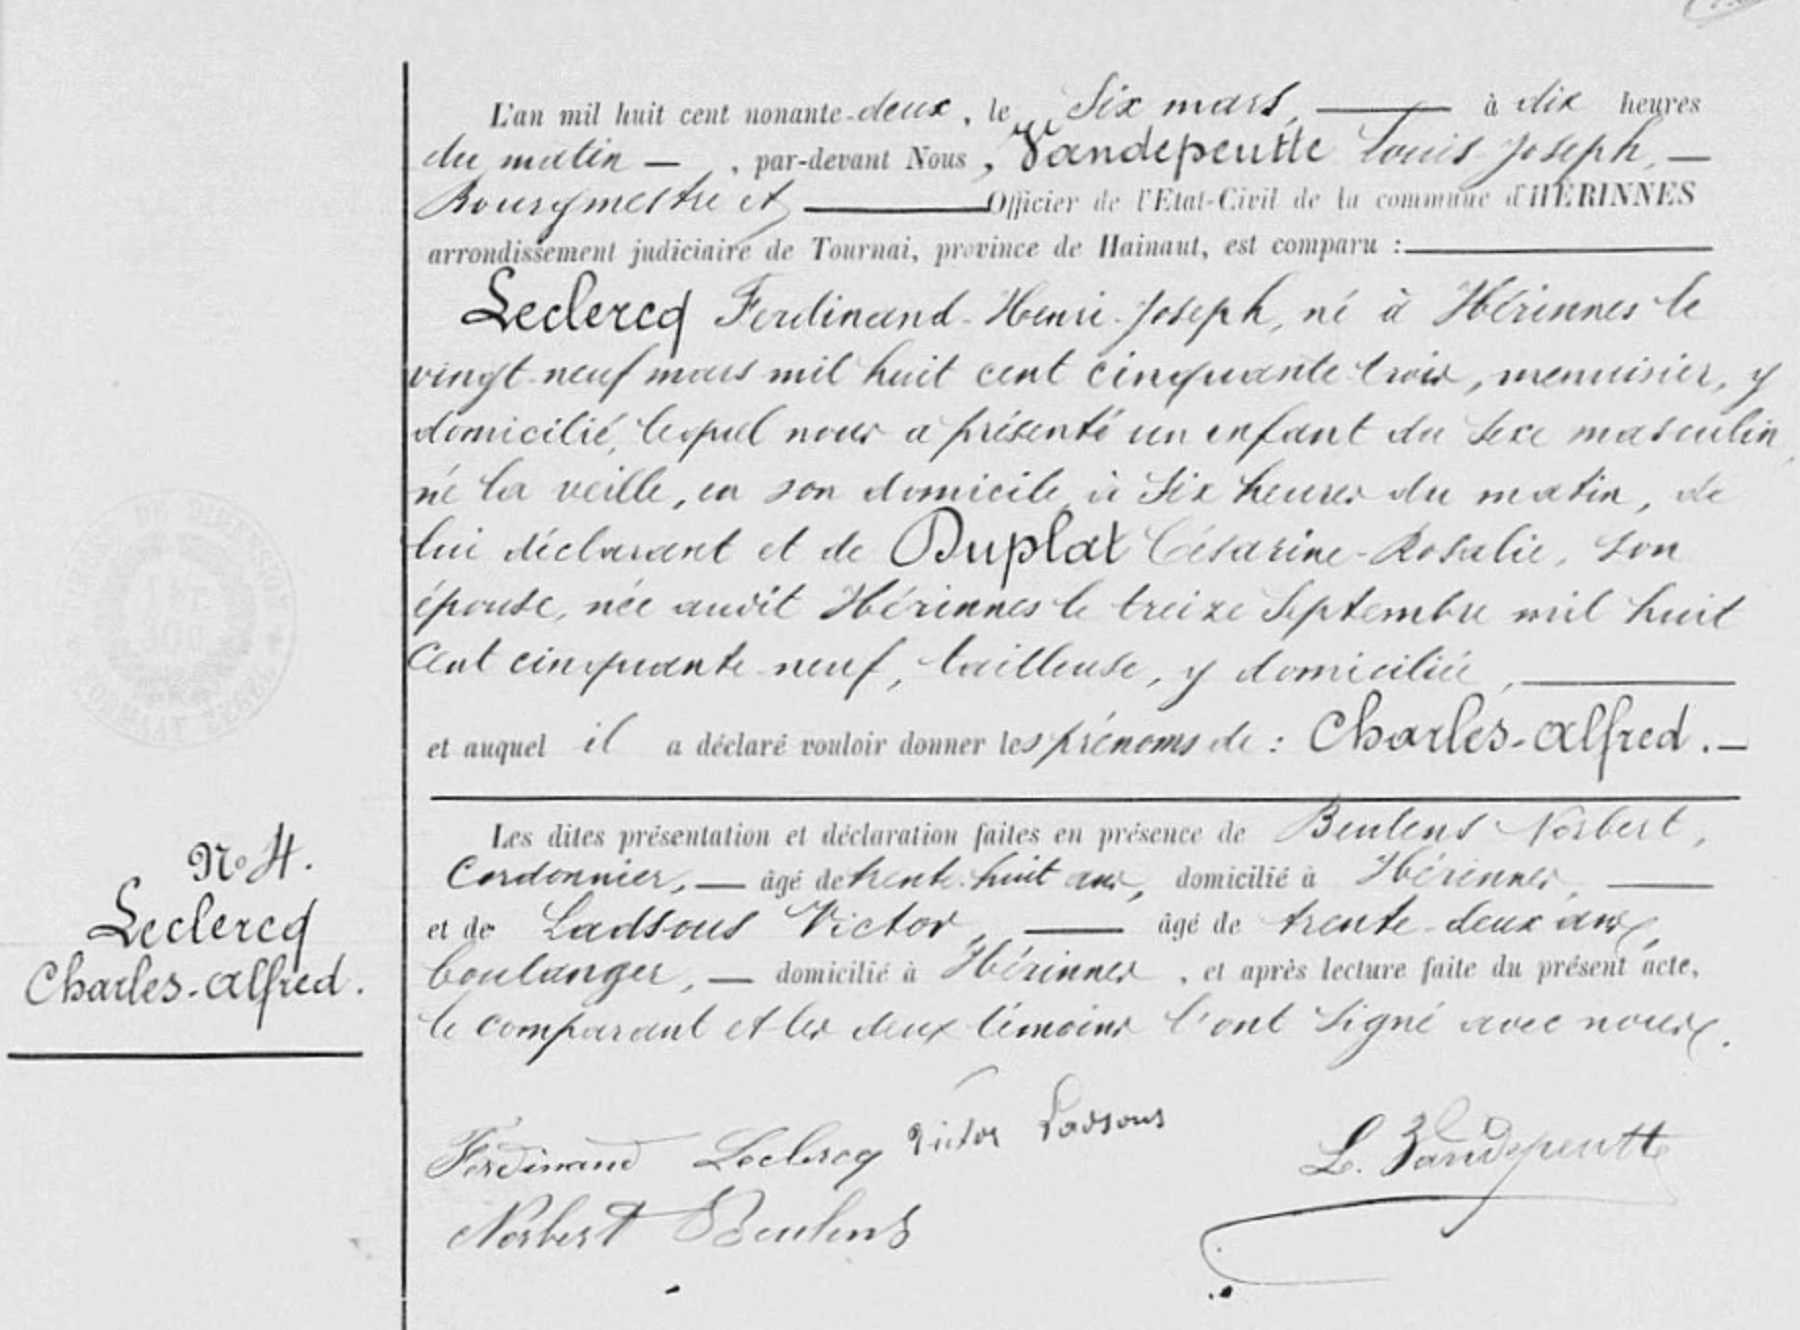 L'an mil huit cent nonante-deux, le Six mars, à dix heures
du matin, par-devant Nous, Vandepeutte Louis-Joseph,
Bourgmestre et Officier de l'Etat-Civil de la commune d'HÉRINNES
arrondissement judiciaire de Tournai, province de Hainaut, est comparu :
Leclercq Ferdinand-Henri-Joseph, né à Hérinnes le
vingt-neuf mars mil huit cent cinquante-trois, menuisier, y
domicilié, lequel nous a présenté un enfant du sexe masculin,
né la veille, en son domicile à six heures du matin, de
lui déclarant et de Duplat Césarine-Rosalie, son
épouse, née audit Hérinnes le treize Septembre mil huit
cent cinquante-neuf, tailleuse, y domiciliée,
et auquel il a déclaré vouloir donner les prénoms de : Charles-Alfred.
Les dites présentation et déclaration faites en présence de Beulens Norbert,
Cordonnier, âgé de trente-huit ans, domicilié à Hérinnes,
et de Ladsous Victor, âgé de trente-deux ans,
boulanger, domicilié à Hérinnes, et après lecture faite du présent acte,
le comparant et les deux témoins l'ont signé avec nous.
N° 4.
Leclercq
Charles-Alfred.
Ferdinand Leclercq Victor Ladsous
L. Vandepeutte
Norbert Beulens